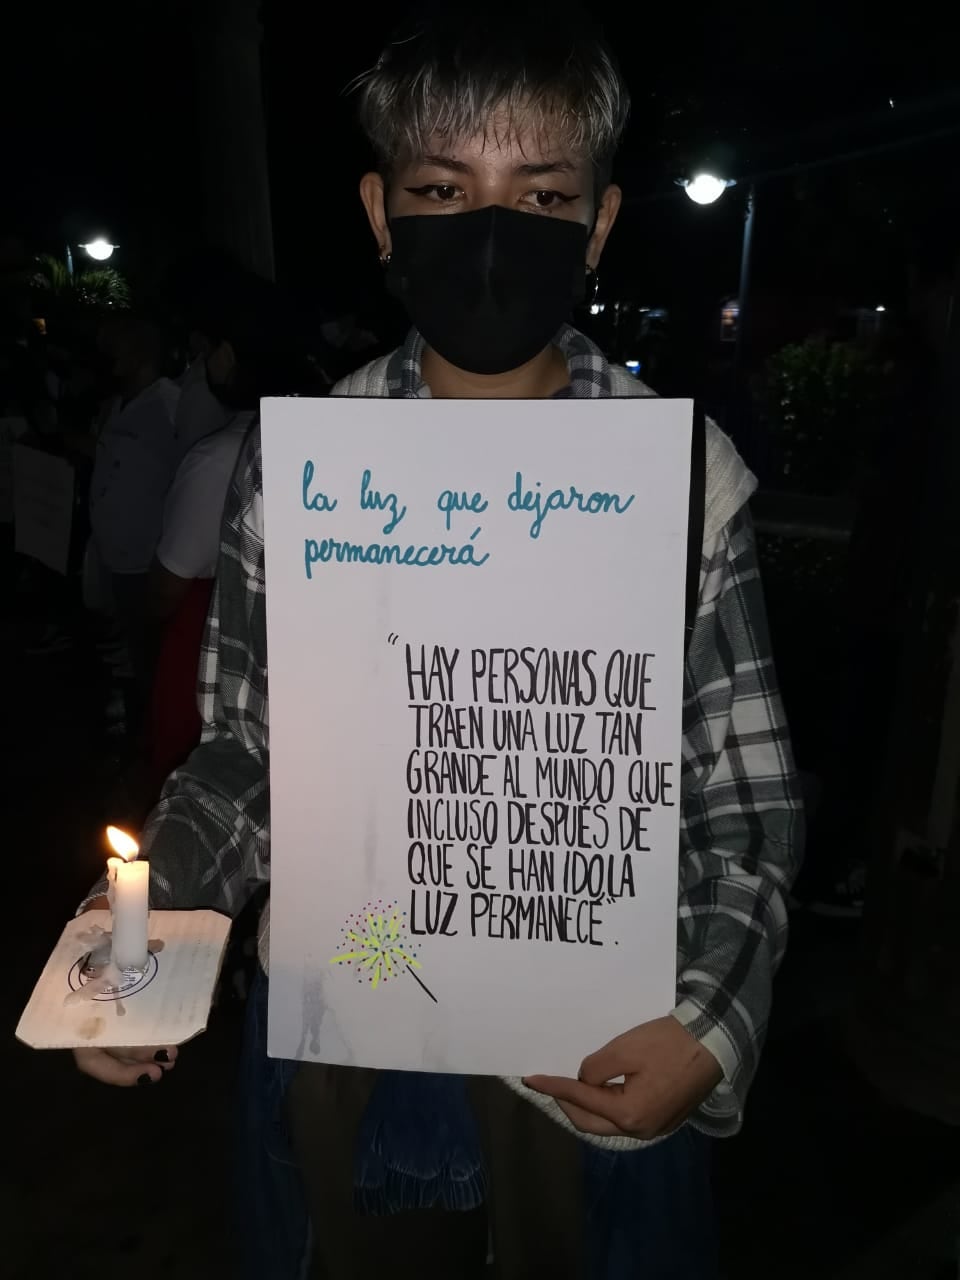 la luz que dejaron
permanecerá
"HAY PERSONAS QUE
TRAEN UNA LUZ TAN
GRANDE AL MUNDO QUE
INCLUSO DESPUÉS DE
QUE SE HAN IDO,LA
LUZ PERMANECE".